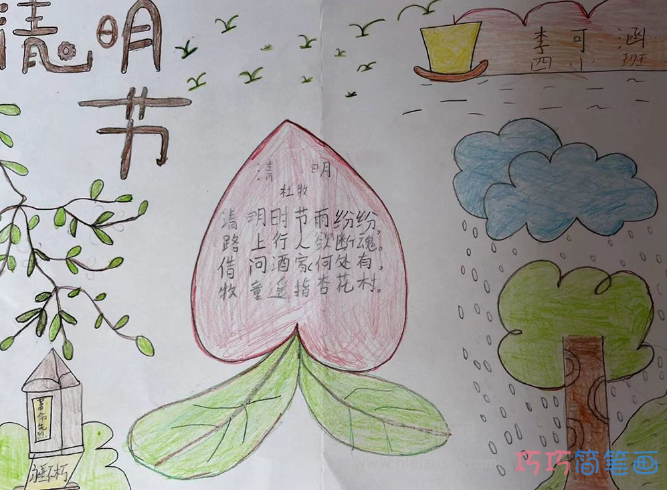 清明
节
李可涵
四小班
清明
杜牧
清明时节雨纷纷,
路上行人欲断魂。
借问酒家何处有,
牧童遥指杏花村。
永垂不朽
巧巧简笔画